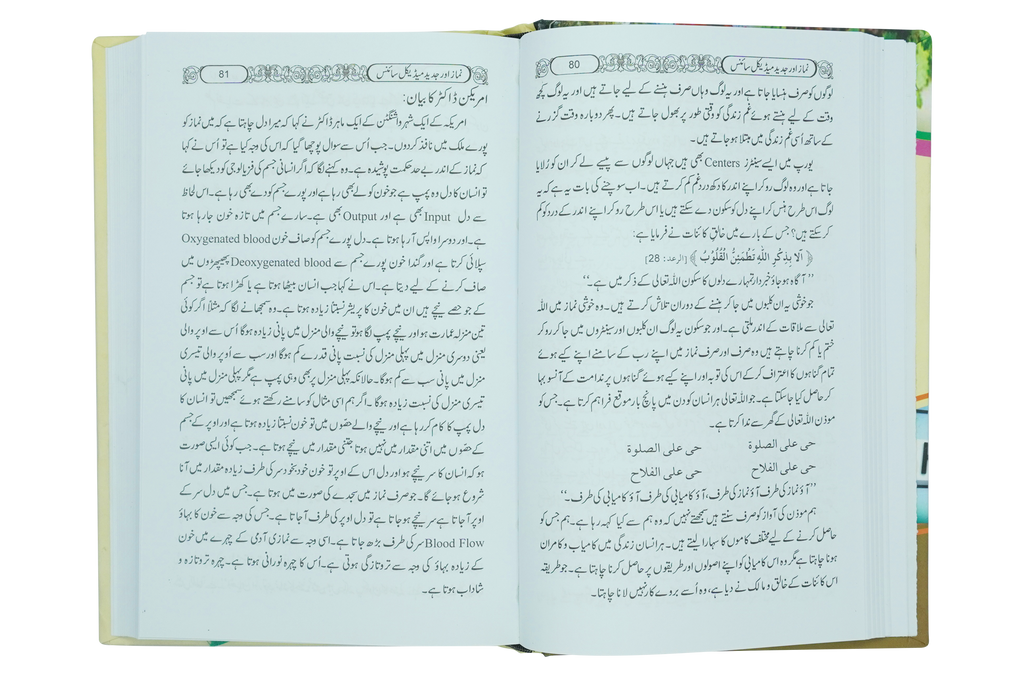 نماز اور جدید میڈیکل سائنس
80
لوگوں کو صرف ہنسایا جاتا ہے اور یہ لوگ وہاں صرف ہنسنے کے لیے جاتے ہیں اور یہ لوگ کچھ
وقت کے لیے ہنستے ہوئے غمِ زندگی کو وقتی طور پر بھول جاتے ہیں۔ پھر دوبارہ وقت گزرنے
کے ساتھ اُسی غمِ زندگی میں مبتلا ہو جاتے ہیں۔
یورپ میں ایسے سینٹرز Centers بھی ہیں جہاں لوگوں سے پیسے لے کر ان کو رُلایا
جاتا ہے اور وہ لوگ رو کر اپنے اندر کا دکھ درد غم کم کرتے ہیں۔ اب سوچنے کی بات یہ ہے کہ یہ
لوگ اس طرح ہنس کر اپنے دل کو سکون دے سکتے ہیں یا اس طرح رو کر اپنے اندر کے درد کو کم
کر سکتے ہیں؟ جس کے بارے میں خالقِ کائنات نے فرمایا ہے:
﴿ اَلَا بِذِكْرِ اللّٰهِ تَطْمَئِنُّ الْقُلُوْبُ ﴾ [الرعد: 28]
’’آگاہ ہو جاؤ خبردار تمہارے دلوں کا سکون اللہ تعالیٰ کے ذکر میں ہے۔‘‘
جو خوشی یہ ان کلبوں میں جا کر ہنسنے کے دوران تلاش کرتے ہیں۔ وہ خوشی نماز میں اللہ
تعالیٰ سے ملاقات کے اندر ملتی ہے۔ اور جو سکون یہ لوگ ان کلبوں اور سینٹروں میں جا کر رو کر
ختم یا کم کرنا چاہتے ہیں وہ صرف اور صرف نماز میں اپنے رب کے سامنے اپنے کیے ہوئے
تمام گناہوں کا اعتراف کر کے اس کی توبہ اور اپنے کیے ہوئے گناہوں پر ندامت کے آنسو بہا
کر حاصل کیا جا سکتا ہے۔ جو اللہ تعالیٰ ہر انسان کو دن میں پانچ بار موقع فراہم کرتا ہے۔ جس کو
موذن اللہ تعالیٰ کے گھر سے ندا کرتا ہے۔
حی علی الصلوۃ حی علی الصلوۃ
حی علی الفلاح حی علی الفلاح
’’آؤ نماز کی طرف آؤ نماز کی طرف، آؤ کامیابی کی طرف آؤ کامیابی کی طرف۔‘‘
ہم موذن کی آواز کو صرف سنتے ہیں سمجھتے نہیں کہ وہ ہم سے کیا کہہ رہا ہے۔ ہم جس کو
حاصل کرنے کے لیے مختلف کاموں کا سہارا لیتے ہیں۔ ہر انسان زندگی میں کامیاب و کامران
ہونا چاہتا ہے مگر وہ اس کامیابی کو اپنے اصولوں اور طریقوں پر حاصل کرنا چاہتا ہے۔ جو طریقہ
اس کائنات کے خالق و مالک نے دیا ہے، وہ اُسے بروے کار نہیں لانا چاہتا۔
نماز اور جدید میڈیکل سائنس
81
امریکن ڈاکٹر کا بیان:
امریکہ کے ایک شہر واشنگٹن کے ایک ماہر ڈاکٹر نے کہا کہ میرا دل چاہتا ہے کہ میں نماز کو
پورے ملک میں نافذ کر دوں۔ جب اُس سے سوال پوچھا گیا کہ اس کی وجہ کیا ہے تو اُس نے کہا
کہ نماز کے اندر بے حد حکمت پوشیدہ ہے۔ وہ کہنے لگا کہ اگر انسانی جسم کی فزیالوجی کو دیکھا جائے
تو انسان کا دل وہ پمپ ہے جو خون کو لے بھی رہا ہے اور پورے جسم کو دے بھی رہا ہے۔ اس لحاظ
سے دل Input بھی ہے اور Output بھی ہے۔ سارے جسم میں تازہ خون جا رہا ہوتا
ہے۔ اور دوسرا واپس آ رہا ہوتا ہے۔ دل پورے جسم کو صاف خون Oxygenated blood
سپلائی کرتا ہے اور گندا خون پورے جسم سے Deoxygenated blood پھیپھڑوں میں
صاف کرنے کے لیے دیتا ہے۔ اس نے کہا جب انسان بیٹھا ہوتا ہے یا کھڑا ہوتا ہے تو جسم
کے جو حصے نیچے ہیں ان میں خون کا پریشر نسبتاً زیادہ ہوتا ہے۔ وہ سمجھانے لگا کہ مثلاً اگر کوئی
تین منزلہ عمارت ہو اور نیچے پمپ لگا ہو تو نیچے والی منزل میں پانی زیادہ ہوگا اُس سے اوپر والی
یعنی دوسری منزل میں پہلی منزل کی نسبت پانی قدرے کم ہوگا اور سب سے اوپر والی تیسری
منزل میں پانی سب سے کم ہوگا۔ حالانکہ پہلی منزل پر بھی وہی پمپ ہے مگر پہلی منزل میں پانی
تیسری منزل کی نسبت زیادہ ہوگا۔ اگر ہم اسی مثال کو سامنے رکھتے ہوئے سمجھیں تو انسان کا
دل پمپ کا کام کر رہا ہے اور نیچے والے حصّوں میں تو خون نسبتاً زیادہ ہوتا ہے اور اوپر کے جسم
کے حصّوں میں اتنی مقدار میں نہیں ہوتا جتنی مقدار میں نیچے ہوتا ہے۔ جب کوئی ایسی صورت
ہو کہ انسان کا سر نیچے ہو اور دل اس کے اوپر تو خون خود بخود سر کی طرف زیادہ مقدار میں آنا
شروع ہو جائے گا۔ جو صرف نماز میں سجدے کی صورت میں ہوتا ہے۔ جس میں دل سر کے
اوپر آ جاتا ہے سر نیچے ہو جاتا ہے تو دل اوپر کی طرف آ جاتا ہے۔ جس کی وجہ سے خون کا بہاؤ
Blood Flow سر کی طرف بڑھ جاتا ہے۔ اسی وجہ سے نمازی آدمی کے چہرے میں خون
کے زیادہ بہاؤ کی وجہ سے تروتازگی ہوتی ہے۔ اُس کا چہرہ نورانی ہوتا ہے۔ چہرہ تروتازہ و
شاداب ہوتا ہے۔